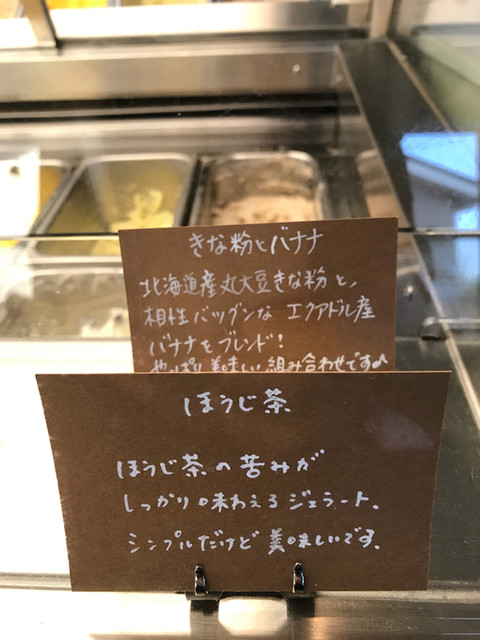 きな粉とバナナ
北海道産丸大豆きな粉と、
相性バツグンな エクアドル産
バナナをブレンド!
やっぱり美味しい組み合わせです♪
ほうじ茶
ほうじ茶の苦みが
しっかり味わえるジェラート。
シンプルだけど美味しいです。